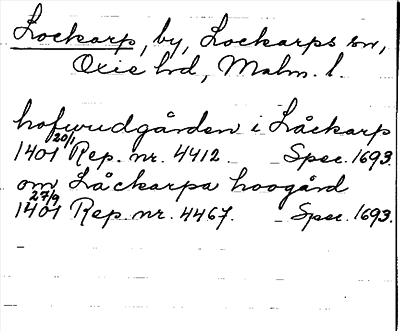 Lockarp, by, Lockarps sn,
Oxie hd, Malm. l.
hofwudgården i Låckarp
1401 20/1 Rep. nr. 4412 Spec. 1693.
om Låckarpa hoogård
1401 27/9 Rep. nr. 4467. Spec. 1693.